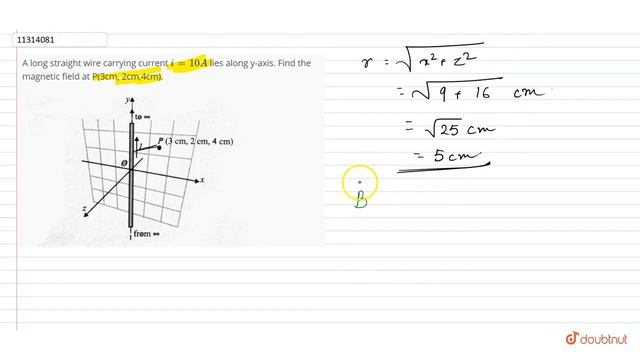 11314081
A long straight wire carrying current i = 10A lies along y-axis. Find the
magnetic field at P(3cm, 2cm,4cm).
y
to ∞
P (3 cm, 2 cm, 4 cm)
O
x
z
i from ∞
r = √x² + z²
= √9 + 16 cm
= √25 cm
= 5 cm
B
doubtnut